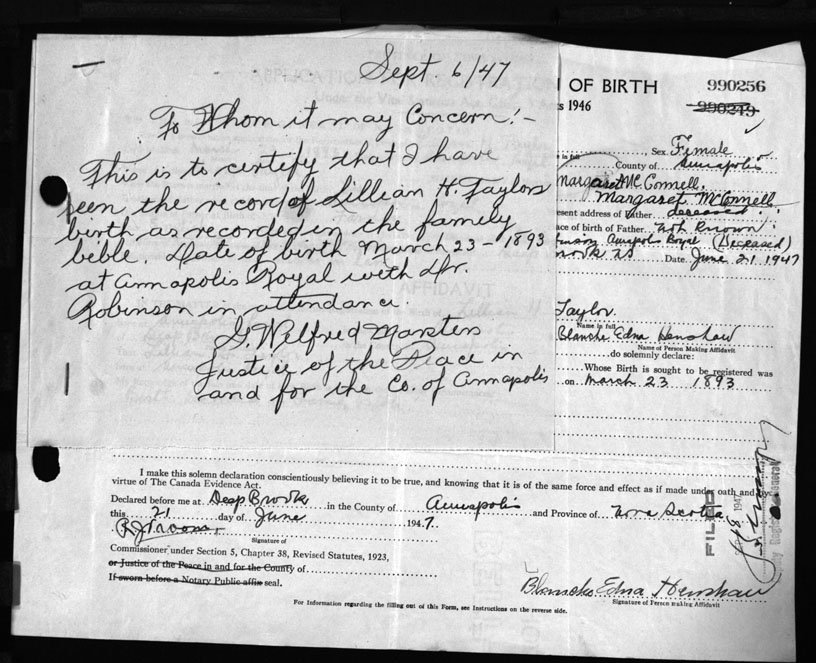 Sept. 6/47
To Whom it may Concern:-
This is to certify that I have
seen the record of Lillian H. Taylors
birth as recorded in the family
bible. Date of birth March 23 - 1893
at Annapolis Royal with Dr.
Robinson in attendance.
G. Wilfred Marsters
Justice of the Peace in
and for the Co. of Annapolis
OF BIRTH
990256
1946
990249
Sex Female
in full
County of Annapolis
Margaret McConnell,
Margaret McConnell
esent address of Father deceased
ace of birth of Father not known
Annapolis Royal (Deceased)
Date June 21 1947
Taylor.
Name in full
Blanche Edna Henshaw
Name of Person Making Affidavit
do solemnly declare:
Whose Birth is sought to be registered was
on March 23 1893
I make this solemn declaration conscientiously believing it to be true, and knowing that it is of the same force and effect as if made under oath and by
virtue of The Canada Evidence Act.
Declared before me at Deep Brook in the County of Annapolis and Province of Nova Scotia
this 21 day of June 1947.
Signature of
Commissioner under Section 5, Chapter 38, Revised Statutes, 1923,
or Justice of the Peace in and for the County of
If sworn before a Notary Public affix seal.
FILED
1947
Blanche Edna Henshaw
Signature of Person Making Affidavit
For Information regarding the filling out of this Form, see Instructions on the reverse side.